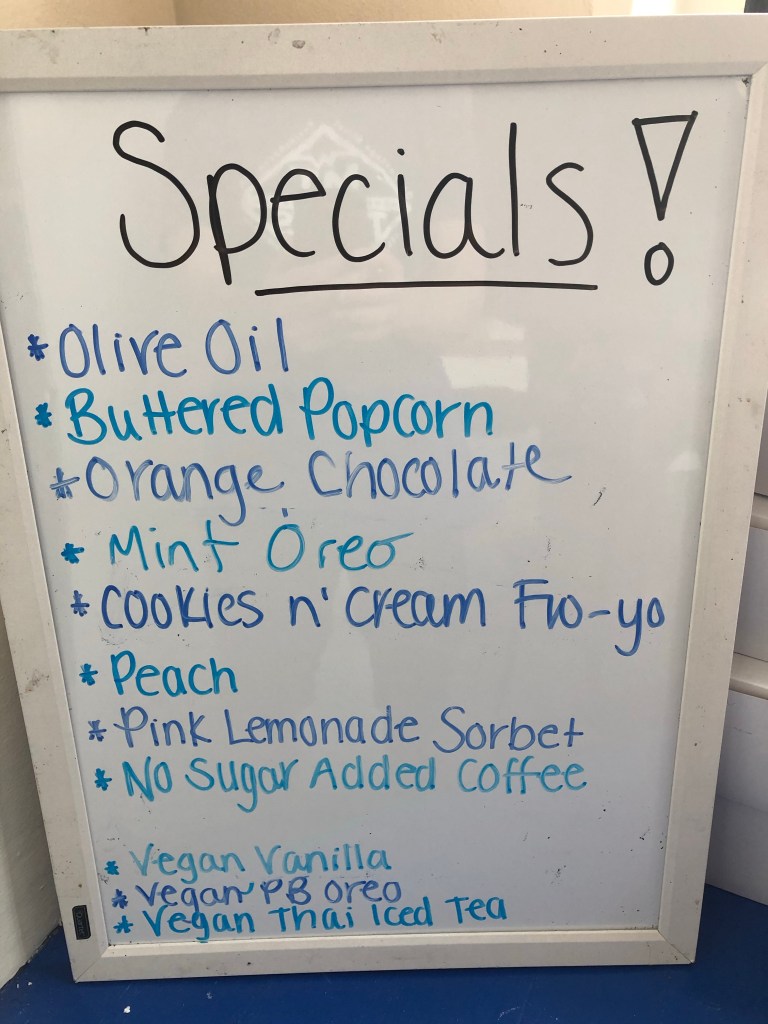 Specials!
* Olive Oil
* Buttered Popcorn
* Orange Chocolate
* Mint Oreo
* Cookies n' Cream Fro-yo
* Peach
* Pink Lemonade Sorbet
* No Sugar Added Coffee
* Vegan Vanilla
* Vegan PB Oreo
* Vegan Thai Iced Tea